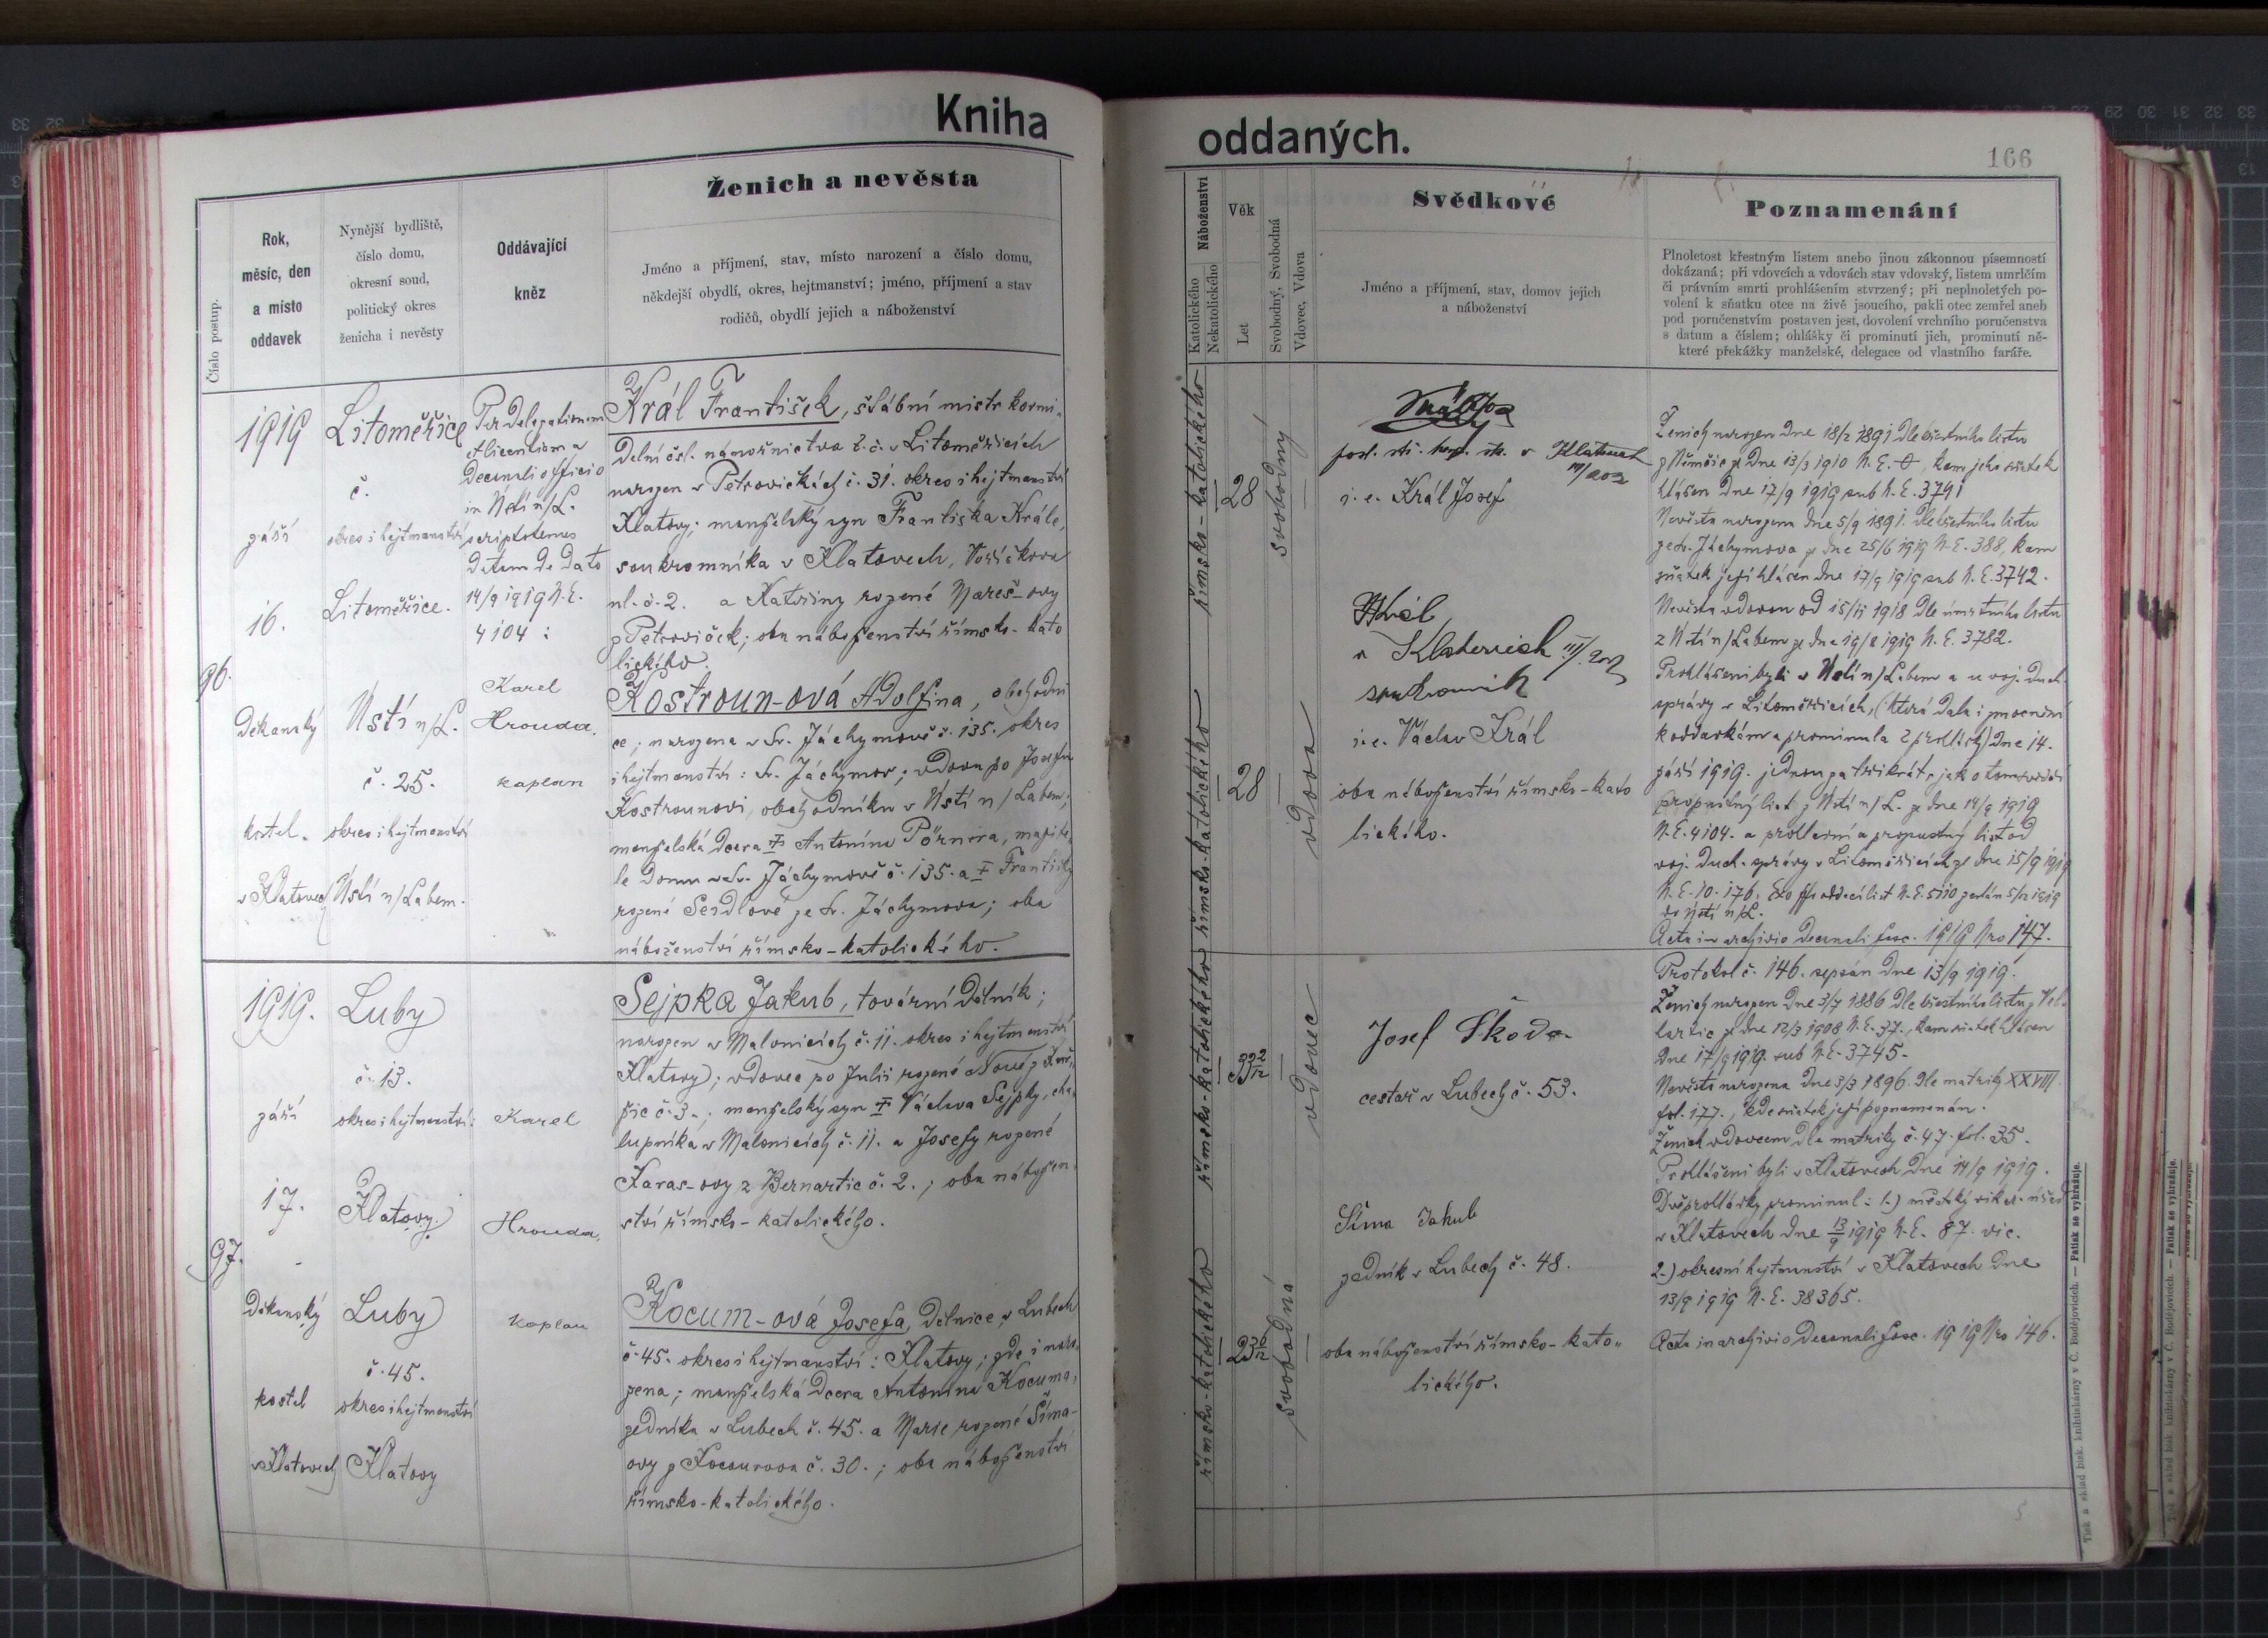 Kniha
Ženich a nevěsta
Číslo postup.
Rok,
měsíc, den
a místo
oddavek
Nynější bydliště,
číslo domu,
okresní soud,
politický okres
ženicha i nevěsty
Oddávající
kněz
Jméno a příjmení, stav, místo narození a číslo domu,
někdejší obydlí, okres, hejtmanství; jméno, příjmení a stav
rodičů, obydlí jejich a náboženství
96.
1919
září
16.
Děkanský
kostel
v Klatovech
Litoměřice
č.
okres i hejtmanství
Litoměřice.
Ústí n/L.
č. 25.
okres i hejtmanství
Ústí n/Labem.
Per Delegationem
et licentiam a
Decanali officio
in Ústí n/L.
Datam de dato
14/9 1919 N.E.
4104:
Karel
Hrouda,
kaplan
Král František, štábní mistr kormi-
delní čsl. námořnictva t. č. v Litoměřicích
narozen v Petrovičkách č. 31. okres i hejtmanství
Klatovy; manželský syn Františka Krále,
soukromníka v Klatovech, Voříškova
ul. č. 2. a Kateřiny rozené Mareš-ovy
z Petroviček; oba náboženství římsko-kato
lického.
Kostroun-ová Adolfina, obchodni
ce; narozena v Sv. Jáchymově č. 135. okres
i hejtmanství: Sv. Jáchymov; vdova po Josefu
Kostrounovi, obchodníku v Ústí n/Labem;
manželská dcera † Antonína Pörnera, majite
le domu v Sv. Jáchymově č. 135. a † Františky
rozené Seidlové ze Sv. Jáchymova; oba
náboženství římsko-katolického.
97.
1919.
září
17.
Děkanský
kostel
v Klatovech
Luby
č. 13.
okres i hejtmanství:
Klatovy.
Luby
č. 45.
okres i hejtmanství
Klatovy
Karel
Hrouda,
kaplan
Sejpka Jakub, tovární dělník;
narozen v Malonicích č. 11. okres i hejtmanství
Klatovy; vdovec po Julii rozené Nové z
č. 3.; manželský syn † Václava Sejpky, cha-
lupníka v Malonicích č. 11. a Josefy rozené
Karas-ovy z Bernartic č. 2.; oba nábožen
ství římsko-katolického.
Kocum-ová Josefa, dělnice v Lubech
č. 45. okres i hejtmanství: Klatovy; zde i naro-
zena; manželská dcera Antonína Kocuma,
zedníka v Lubech č. 45. a Marie rozené Šíma-
ovy z Kocourova č. 30.; oba náboženství
římsko-katolického.
oddaných.
166
Náboženství
Katolického
Nekatolického
Věk
Let
Svobodný, Svobodná
Vdovec, Vdova
Svědkové
Jméno a příjmení, stav, domov jejich
a náboženství
Poznamenání
Plnoletost křestným listem anebo jinou zákonnou písemností
dokázaná; při vdovcích a vdovách stav vdovský, listem umrlčím
či právním smrti prohlášením stvrzený; při neplnoletých po-
volení k sňatku otce na živě jsoucího, pakli otec zemřel aneb
pod poručenstvím postaven jest, dovolení vrchního poručenstva
s datum a číslem; ohlášky či prominutí jich, prominutí ně-
které překážky manželské, delegace od vlastního faráře.
římsko-katolického
28
svobodný
v Klatovech
i. e. Král Josef
římsko-katolického
28
vdova
Král
v Klatovech
soukromník
i. e. Václav Král
oba náboženství římsko-kato
lického.
Ženich narozen dne 18/2 1891 dle křestního listu
z Němčic ze dne 13/3 1910 N.E. 0, kam jeho sňatek
hlášen dne 17/9 1919 sub N.E. 3741
Nevěsta narozena dne 5/9 1891. dle křestního listu
ze Sv. Jáchymova ze dne 25/6 1919 N.E. 388, kam
sňatek její hlášen dne 17/9 1919 sub N.E. 3742.
Nevěsta vdovou od 15/11 1918 dle úmrtního listu
z Ústí n/Labem ze dne 19/8 1919 N.E. 3782.
Prohlášeni byli v Ústí n/Labem a u voj. duch.
správy v Litoměřicích, (která dala i zmocnění
k oddavkám a prominula 2 prohlášky) dne 14.
září 1919. jednou za třikráte, jak o tom svědčí
propustný list z Ústí n/L. ze dne 14/9 1919
N.E. 4104. a prohlašní a propustný list od
voj. duch. správy v Litoměřicích ze dne 15/9 1919
N.E. 10. 176. Ex offo oddací list N.E. 5110 zaslán 5/12 1919
do Ústí n/L.
Acta in archivio decanali fasc. 1919 Nro 147.
římsko-katolického
33 2/12
vdovec
Josef Škoda.
cestář v Lubech č. 53.
římsko-katolického
23 6/12
svobodná
Šíma Jakub
zedník v Lubech č. 48.
oba náboženství římsko-kato-
lického.
Protokol č. 146. sepsán dne 13/9 1919.
Ženich narozen dne 3/7 1886 dle křestního listu z Vel-
hartic ze dne 12/3 1908 N.E. 37., kam sňatek hlášen
dne 17/9 1919. sub N.E. 3745.
Nevěsta narozena dne 3/3 1896. dle matriky XXVIII.
fol. 177., kde sňatek její poznamenán.
Ženich vdovcem dle matriky č. 47. fol. 35.
Prohlášeni byli v Klatovech dne 14/9 1919.
Dvě prohlášky prominul: 1.) městský vikar. úřad
v Klatovech dne 13/9 1919 N.E. 87. vic.
2.) okresní hejtmanství v Klatovech dne
13/9 1919 N.E. 38365.
Acta in archivio decanali fasc. 1919 Nro 146.
Tisk a sklad bisk. knihtiskárny v Č. Budějovicích. — Patisk se vyhražuje.